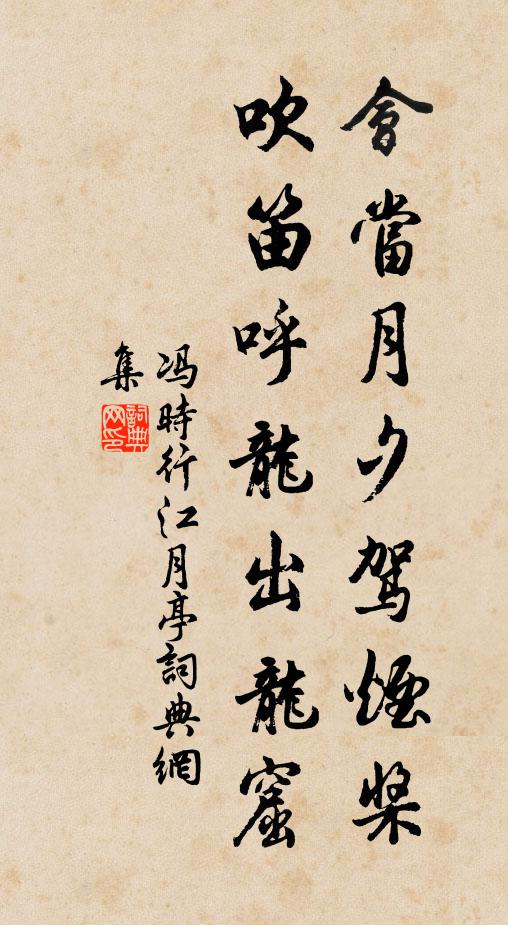 會當月夕駕煙槳
吹笛呼龍出龍窟
冯時行江月亭詞典網
集
詞典
网印